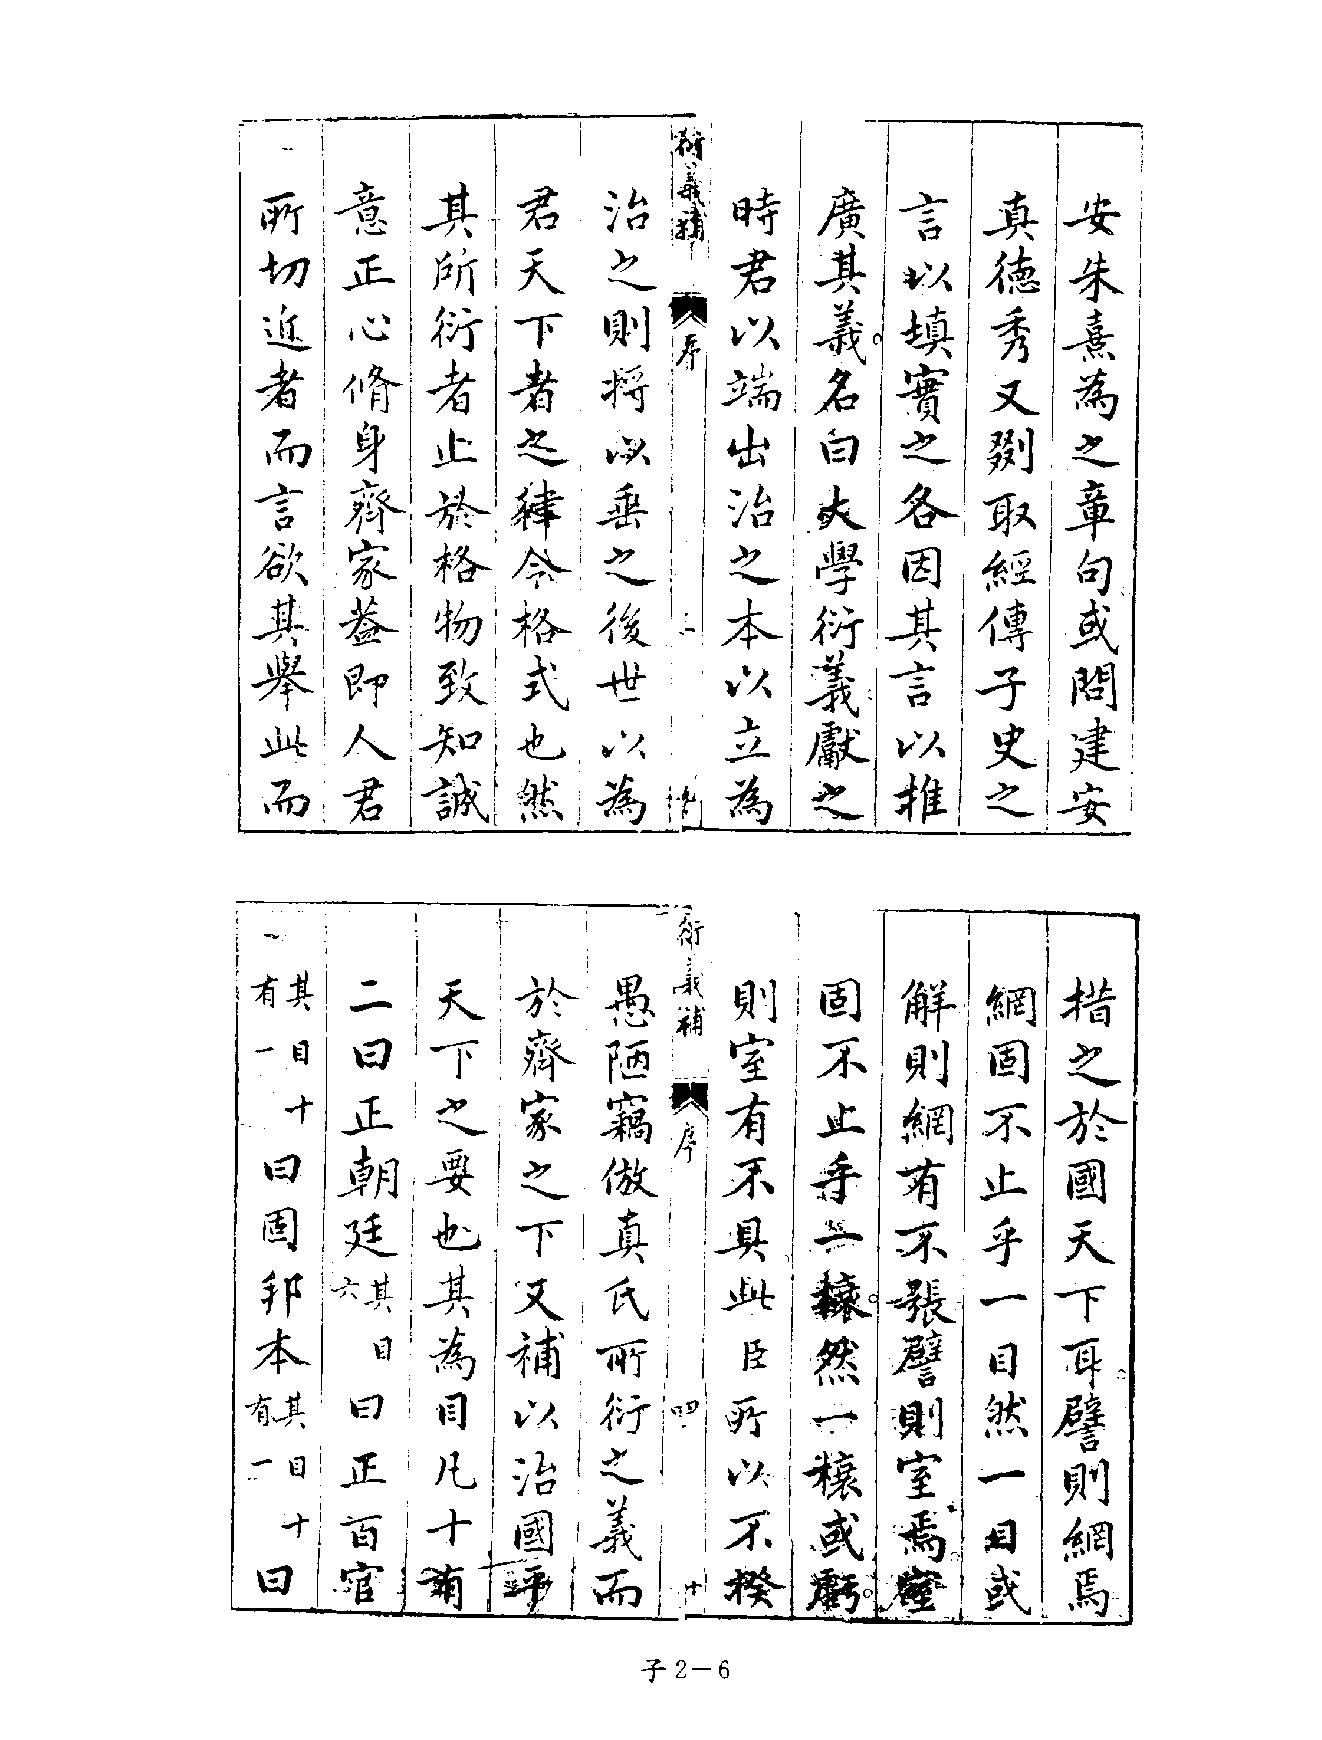 安朱熹為之章句或問建安
真德秀又剟取經傳子史之
言以填實之各因其言以推
廣其義名曰大學衍義獻之
時君以端出治之本以立為
衍義補
序
三
治之則將以垂之後世以為
君天下者之律令格式也然
其所衍者止於格物致知誠
意正心脩身齊家葢即人君
所切近者而言欲其舉此而
措之於國天下耳譬則網焉
網固不止乎一目然一目或
解則網有不張譬則室焉室
固不止乎一榱然一榱或虧
則室有不具此臣所以不揆
衍義補
序
四
十
愚陋竊倣真氏所衍之義而
於齊家之下又補以治國平
天下之要也其為目凡十有
二曰正朝廷其目六曰正百官
其目十有一曰固邦本其目十有一曰
子2－6